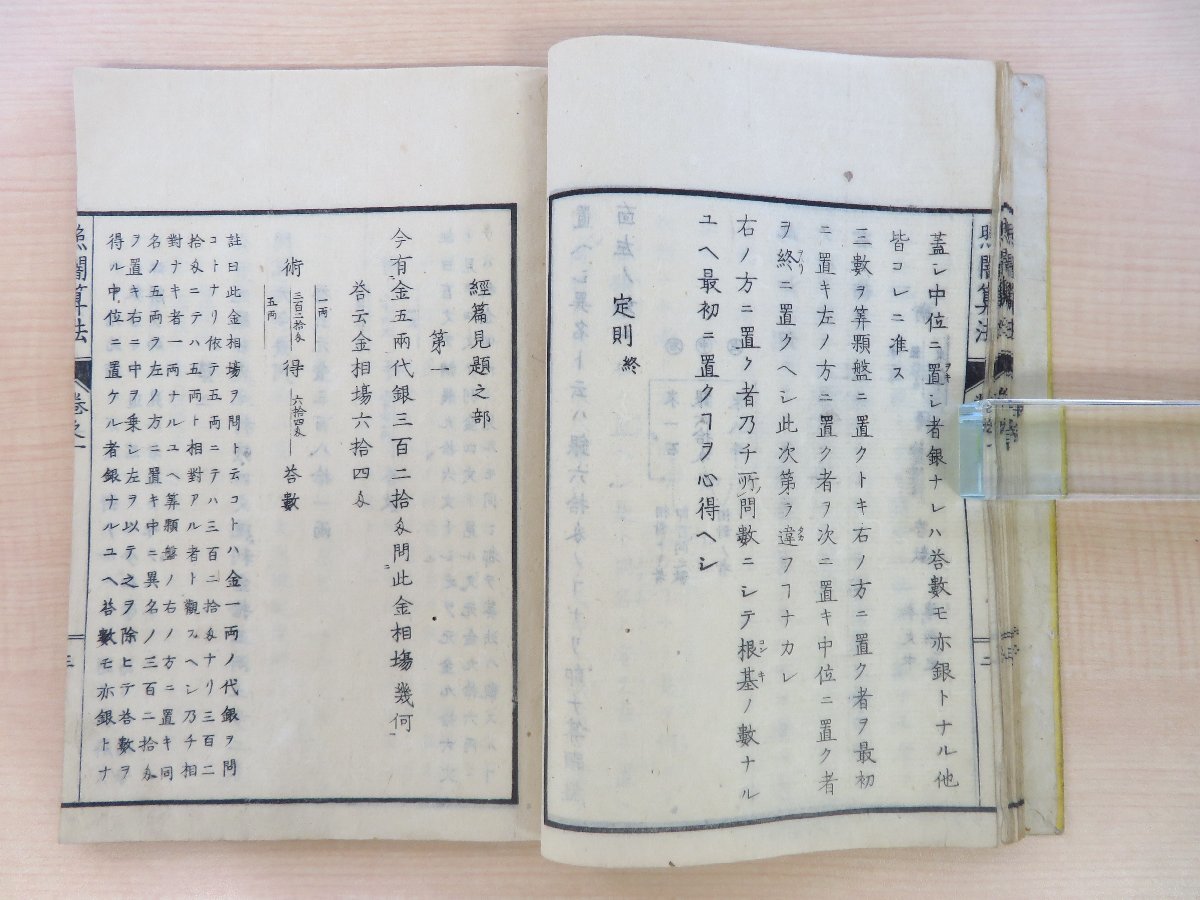 蓋シ中位ニ置シ者銀ナレハ答數モ亦銀トナル他
皆コレニ准ス
三數ヲ算顆盤ニ置クトキ右ノ方ニ置ク者ヲ最初
ニ置キ左ノ方ニ置ク者ヲ次ニ置キ中位ニ置ク者
ヲ終ニ置クヘシ此次第ヲ違フヿナカレ
右ノ方ニ置ク者乃チ所問數ニシテ根基ノ數ナル
ユヘ最初ニ置クヿヲ心得ヘシ
定則終
照闇算法
卷之一
二
經篇見題之部
第一
今有金五兩代銀三百二拾匁問此金相場幾何
答云金相場六拾四匁
術
一兩
三百二拾匁
五兩
得
六拾四匁
答數
註曰此金相場ヲ問ト云コトハ金一兩ノ代銀ヲ問
コトナリ依テ五兩ニテハ三百二拾匁ナリ三百二
拾匁ニテハ五兩ト相對アル者ト觀スヘシ乃チ相
對ナキ者一兩ナルユヘ算顆盤ノ右ノ方ニ置キ同
名ノ五兩ヲ左ノ方ニ置キ中ニ異名ノ三百二拾匁
ヲ置キ右ニ中ヲ乗シ左ヲ以テ之ヲ除ヒテ答數ヲ
得ル中位ニ置ケル者銀ナルユヘ答數モ亦銀トナ
照闇算法
卷之一
三